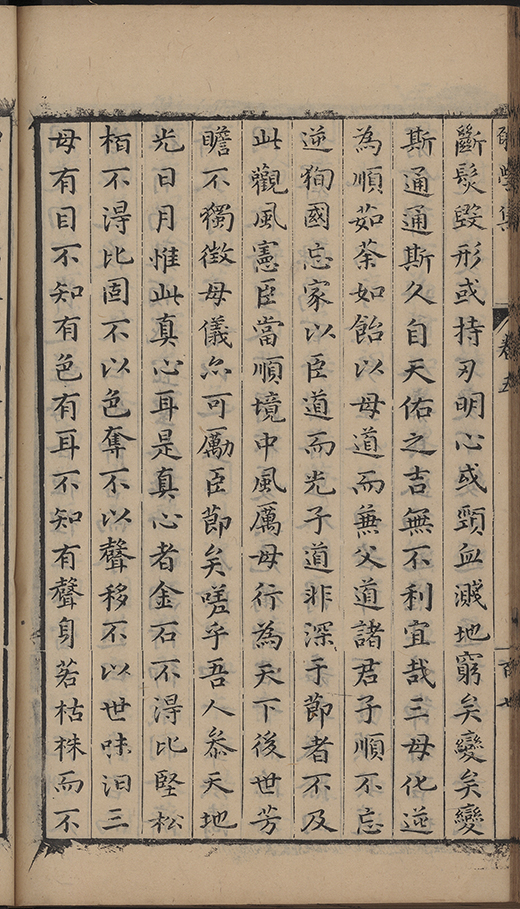 卷五
斷髮毀形或持刃明心或頸血濺地窮矣變矣變
斯通通斯久自天佑之吉無不利宜哉三母化逆
為順茹荼如飴以母道而蕪父道諸君子順不忘
逆狥國忘家以臣道而光子道非深于節者不及
此觀風憲臣當順境中風厲母行為天下後世芳
瞻不獨徴母儀尒可勵臣節矣嗟乎吾人叅天地
光日月惟此真心耳是真心者金石不得比堅松
栢不得比固不以色奪不以聲移不以世味汩三
母有目不知有色有耳不知有聲身若枯株而不